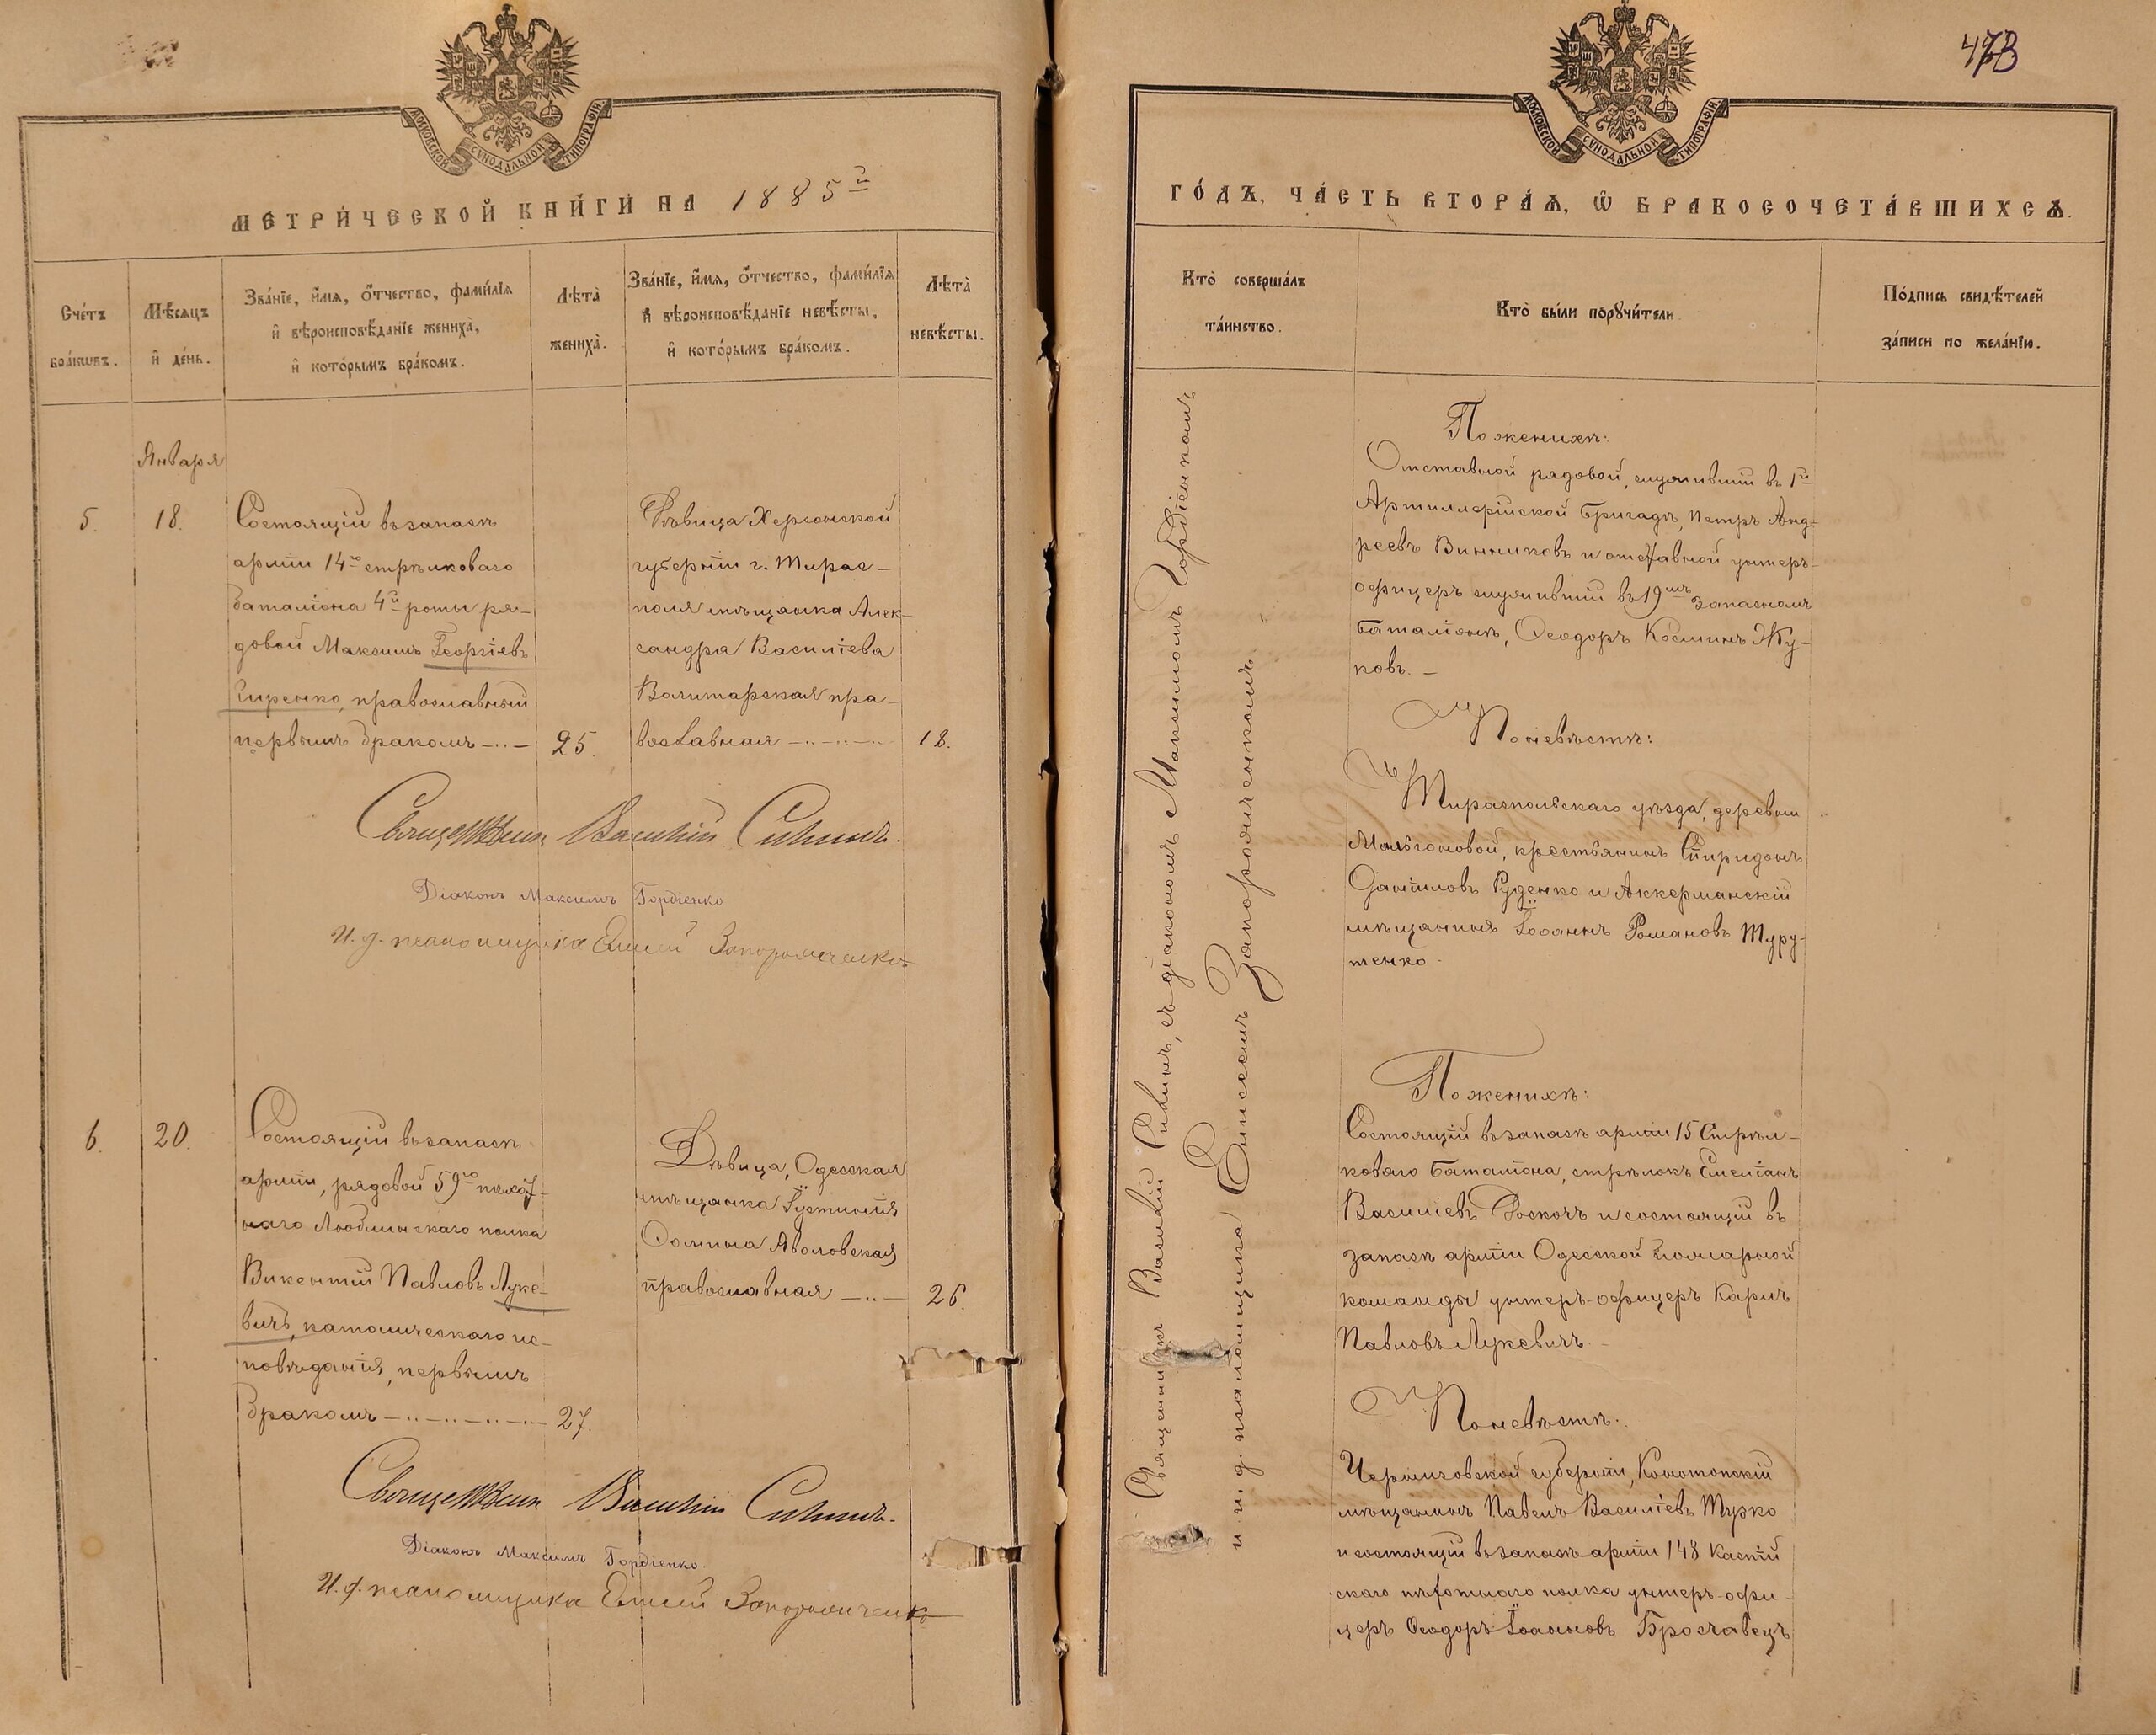 МОСКОВСКОЙ СѴНОДАЛЬНОЙ ТИПОГРАФІИ
МЕТРИ́ЧЕСКОЙ КНИ́ГИ НА 1885й
Сче́тъ бра́кѡвъ.
Мѣ́сяцъ и҆ де́нь.
Зва́нїе, и҆́мѧ, ѻ҆́тчество, фами́лїѧ
и҆ вѣроисповѣ́данїе жениха̀,
и҆ кото́рымъ бра́комъ.
Лѣта̀ жениха̀.
Зва́нїе, и҆́мѧ, ѻ҆́тчество, фами́лїѧ
и҆ вѣроисповѣ́данїе невѣ́сты,
и҆ кото́рымъ бра́комъ.
Лѣта̀ невѣ́сты.
Января
5.
18.
Состоящій въ запасѣ
арміи 14го стрѣлковаго
баталіона 4й роты ря-
довой Максимъ Георгіевъ
Гиренко, православный
первымъ бракомъ
25.
Дѣвица Херсонской
губерніи г. Тирас-
поля мѣщанка Алек-
сандра Василіева
пра-
вославная
18.
Священникъ Василій
Діаконъ Максимъ Гордіенко
И. д. псаломщика Елисей Запорожченко
6.
20.
Состоящій въ запасѣ
арміи, рядовой 59го пѣхот-
наго Люблинскаго полка
Викентій Павловъ Луке-
вичъ, католическаго ис-
повѣданія, первымъ
бракомъ
27.
Дѣвица, Одесская
мѣщанка Іустинія
Ѳомина Яволовская
православная
26.
Священникъ Василій
Діаконъ Максимъ Гордіенко.
И. д. псаломщика Елисей Запорожченко
МОСКОВСКОЙ СѴНОДАЛЬНОЙ ТИПОГРАФІИ
ГО́ДЪ, ЧА́СТЬ ВТОРА́Ѧ, Ѡ҆ БРАКОСОЧЕТА́ВШИХСѦ.
Кто̀ соверша́лъ
та́инство.
Кто̀ бы́ли порꙋчи́тели.
По́дпись свидѣ́телей
за́писи по жела́нїю.
Священникъ Василій съ діакономъ Максимомъ Гордіенкомъ
и и. д. псаломщика Елисеемъ Запорожченкомъ
По женихѣ:
Отставной рядовой, служившій въ 1й
Артиллерійской Бригадѣ, Петръ Анд-
реевъ Винниковъ и отставной унтеръ-
офицеръ служившій въ 19мъ запасномъ
баталіонѣ, Ѳеодоръ Косминъ Жу-
ковъ. –
По невѣстѣ:
Тираспольскаго уѣзда, деревни
крестьянинъ Спиридонъ
Даніиловъ Руденко и Аккерманскій
мѣщанинъ Іоаннъ Романовъ Туру-
тенко.
По женихѣ:
Состоящій въ запасѣ арміи 15 Стрѣл-
коваго Баталіона, стрѣлокъ Емеліанъ
Василіевъ и состоящій въ
запасѣ арміи Одесской пожарной
команды унтеръ-офицеръ Карлъ
Павловъ Лукевичъ.
По невѣстѣ:
Черниговской губерніи, Конотопскій
мѣщанинъ Павелъ Василіевъ Турко
и состоящій въ запасѣ арміи 148 Каспій
скаго пѣхотнаго полка унтеръ-офи-
церъ Ѳеодоръ Іоанновъ Брославецъ